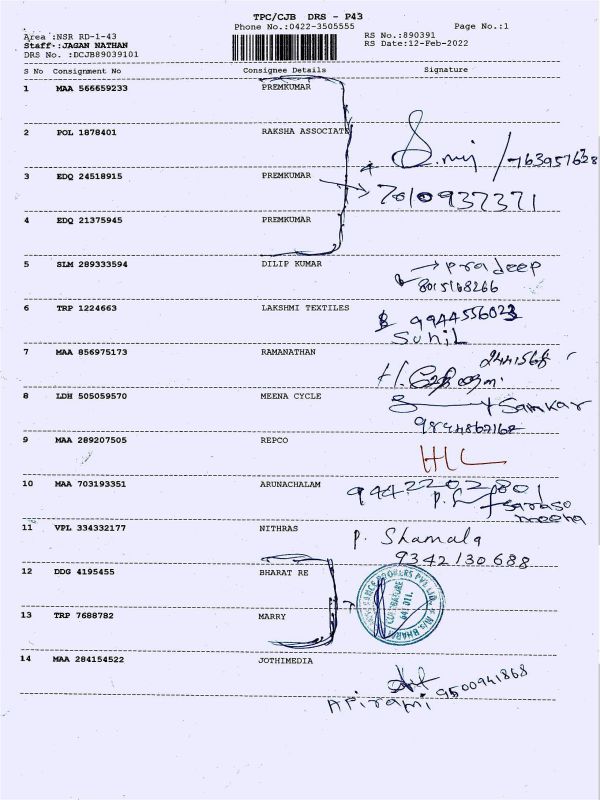 TPC/CJB DRS - P43
Phone No.:0422-3505555 Page No.:1
Area :NSR RD-1-43 RS No.:890391
Staff :JAGAN NATHAN RS Date:12-Feb-2022
DRS No. :DCJB89039101
S No Consignment No Consignee Details Signature
1 MAA 566659233 PREMKUMAR
2 POL 1878401 RAKSHA ASSOCIATE
3 EDQ 24518915 PREMKUMAR
7010937371
4 EDQ 21375945 PREMKUMAR
5 SLM 289333594 DILIP KUMAR
pradeep
8015168266
6 TRP 1224663 LAKSHMI TEXTILES
9944556023
Sunil
7 MAA 856975173 RAMANATHAN
2441568
8 LDH 505059570 MEENA CYCLE
Samkar
9 MAA 289207505 REPCO
10 MAA 703193351 ARUNACHALAM
9442202801
11 VPL 334332177 NITHRAS
P. Shamala
9342130688
12 DDG 4195455 BHARAT RE
COIMBATORE
641 011.
13 TRP 7688782 MARRY
14 MAA 284154522 JOTHIMEDIA
Apirami 9500941868